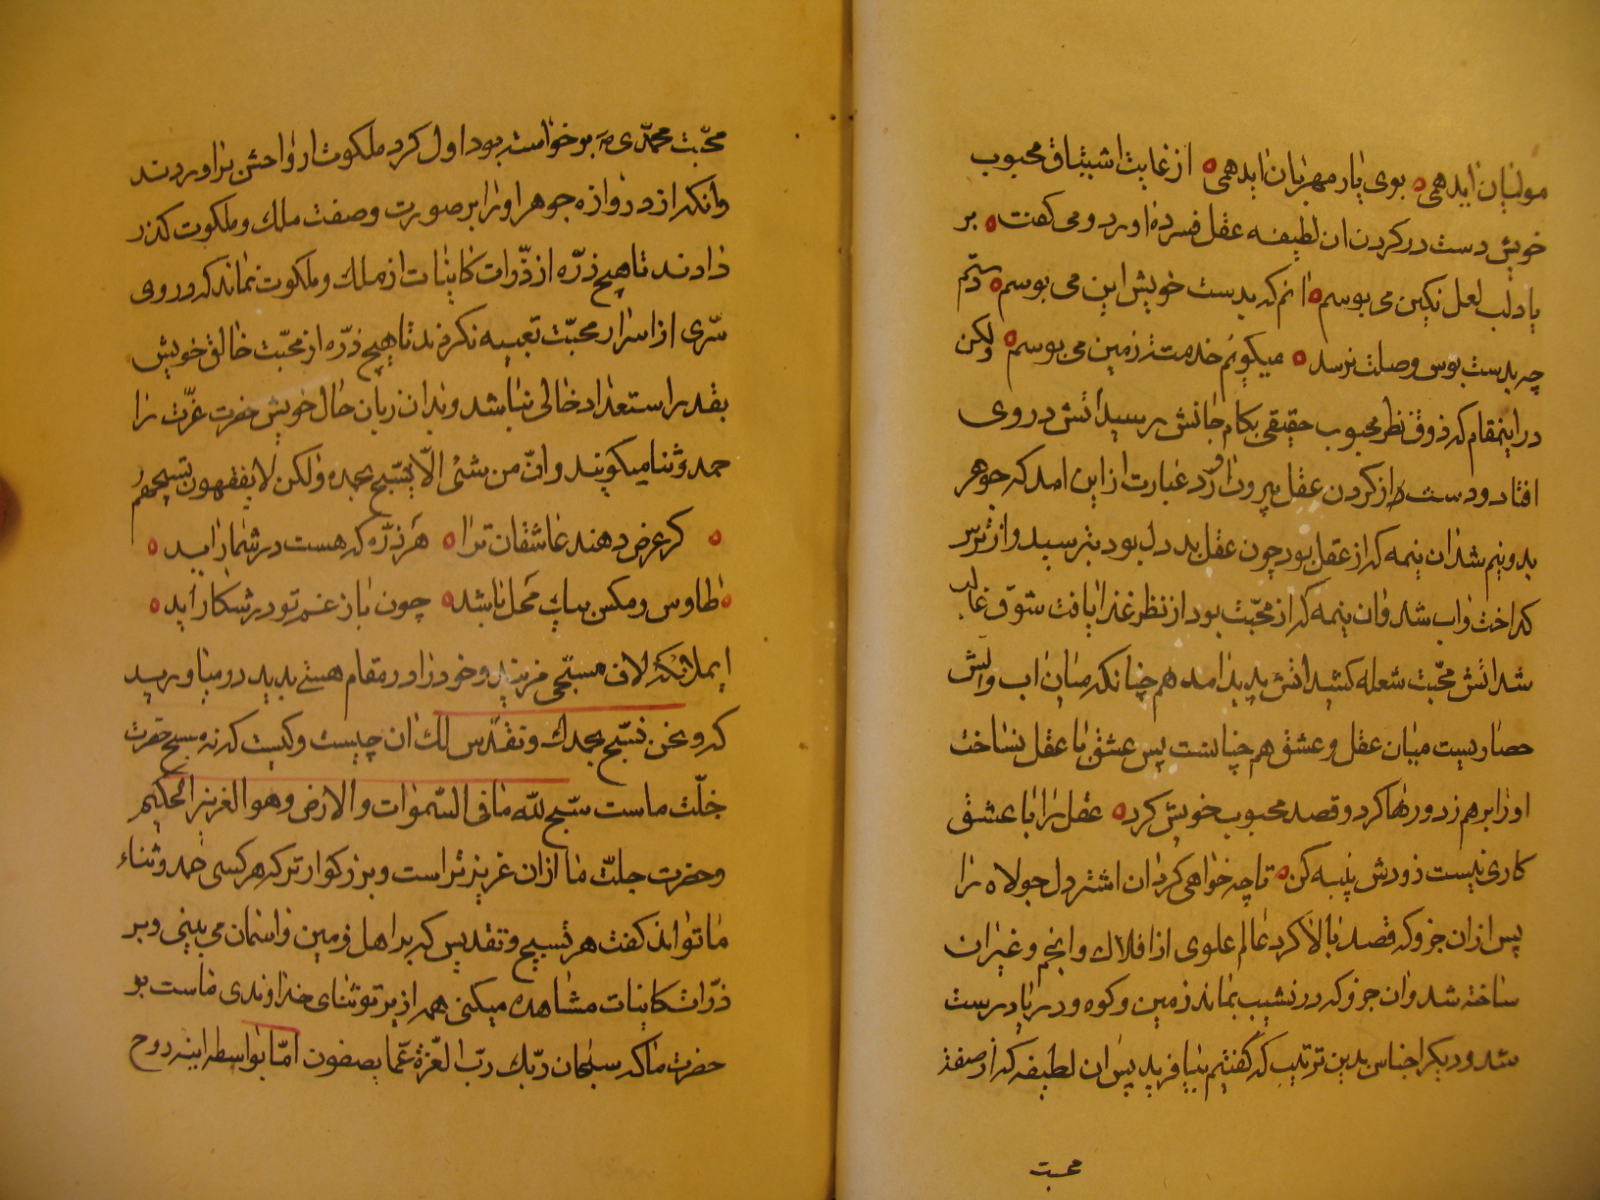 مولیان آید همی بوی یار مهربان آید همی از غایت اشتیاق محبوب
خویش دست در کردن ان لطیفه عقل فسرده اورد و می کفت بر
یاد لب لعل نکین می بوسم آنم که بدست خویش این می بوسم دستم
چو بدست بوس وصلت نرسد میکویم خدمت زمین می بوسم ولکن
در اینمقام که ذوق نظر محبوب حقیقی بکام جانش رسید آتش در وی
افتاد و دست از کردن عقل بیرون آورد عبارت از این امد که جوهر
بدونیم شد ان نیمه که از عقل بود چون عقل بد دل بود بترسید و از ترس
کداخت و اب شد و ان نیمه که از محبّت بود از نظر غذا یافت شوق غالب
شد اتش محبّت شعله کشید اتش پدید امد هم چنانکه میان اب و آتش
حصاریست میان عقل و عشق هم چنانست پس عشق با عقل نساخت
او را برهم زد و رها کرد و قصد محبوب خویش کرد عقل را با عشق
کاری نیست زودش پنبه کن تا چه خواهی کرد ان اشتر دل جولاه را
پس از ان جزو که قصد بالا کرد عالم علوی از افلاک و انجم و غیر ان
ساخته شد و ان جزو که در نشیب بماند زمین و کوه و دریا درست
شد و دیکر اجناس بدین ترتیب که کفتیم بیافرید پس ان لطیفه که از صفت
محبت
محبّت محمّدی بر خواسته بود اول کرد ملکوت ارواحش براوردند
وانکه از دروازه جوهر او را بر صورت و صفت ملک و ملکوت کذر
دادند تا هیچ ذرّه از ذرّات کاینات از ملک و ملکوت نماند که در وی
سرّی از اسرار محبّت تعبیه نکردند تا هیچ ذرّه از محبّت خالق خویش
بقدر استعداد خالی نباشد و بدان زبان حال خویش حضرت عزّت را
حمد و ثنا میکویند و انّ من شئ الّا یسّبح بحمده ولکن لا یفقهون تسبیحهم
کر عرض دهند عاشقان ترا هر ذرّه که هست در شمار آید
طاوس و مکس بیک محل باشد چون باز غم تو در شکار آید
ای ملائکه لاف مسبّحی مزنید و خود را در مقام هستی پدید در میاورید
که و نحن نسّبح بحمدک و نقدّس لک ان چیست و کیست که نه مسبح حضرت
جلّت ماست سبّح للّه ما فی السّموات والارض و هو العزیز الحکیم
و حضرت جلّت ما از ان عزیزتر است و بزرکوارتر که هرکسی حمد و ثناء
ما تواند کفت هر تسبیح و تقدیس که بر اهل زمین و اسمان می بینی و بر
ذرّات کاینات مشاهده میکنی همه از پرتو ثنای خداوندی ماست بر
حضرت ما که سبحان ربّک ربّ العزّة عمّا یصفون امّا بواسطه اینه روح